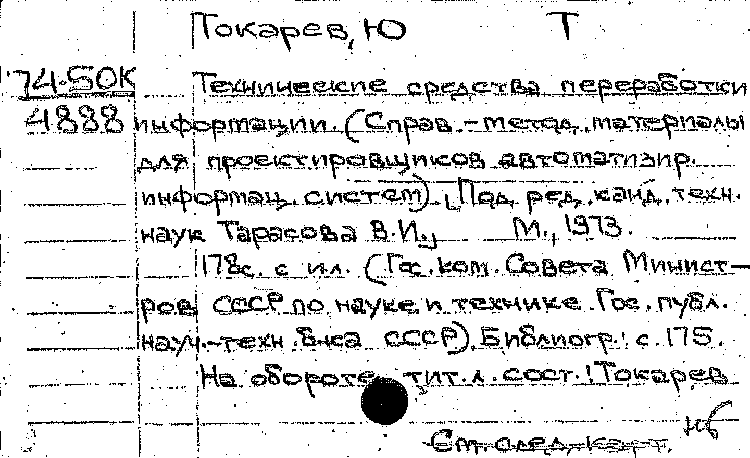 Токарев, Ю Т
74-50К Технические средства переработки
4888 информации. (Справ.-метод. материалы
для проектировщиков автоматизир.
информац. систем). Под ред. канд. техн.
наук Тарасова В.И., М., 1973.
178с. с ил. (Гос. ком. Совета Минист-
ров СССР по науке и технике. Гос. публ.
науч.-техн. б-ка СССР). Библиогр.: с. 175.
На обороте тит. л. сост.: Токарев
См. след. карт.